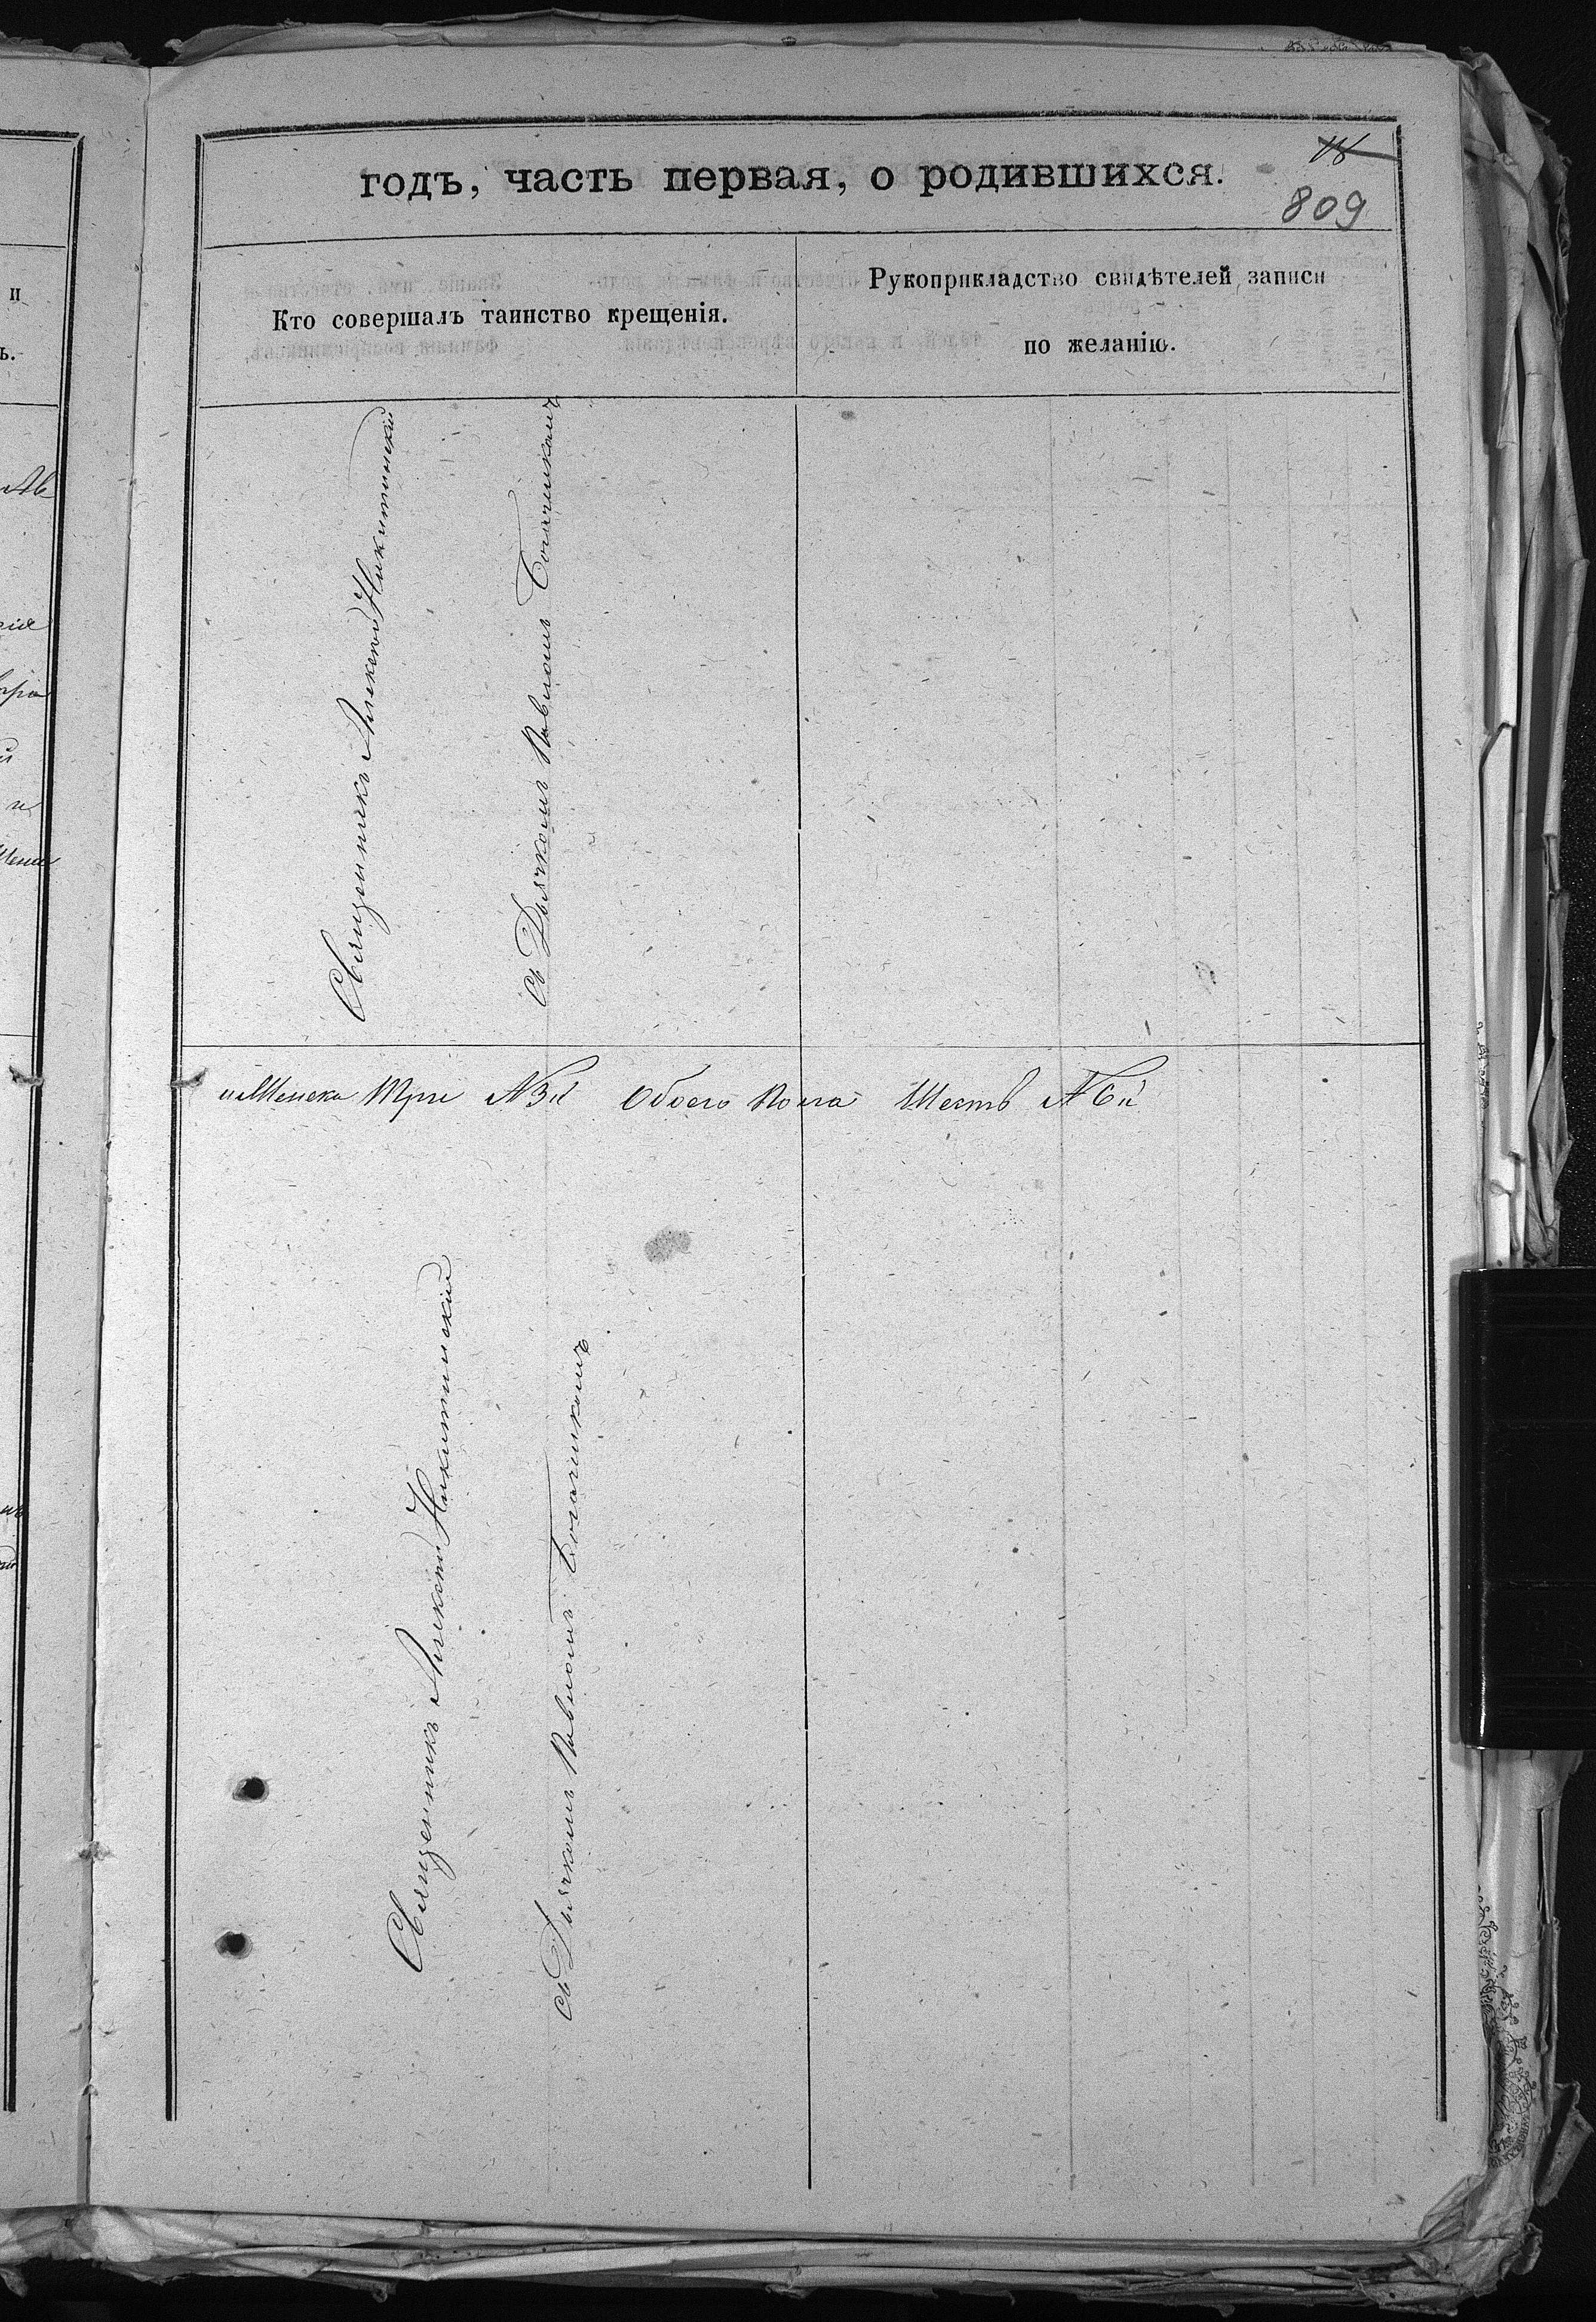 годъ, часть первая, о родившихся.
18
809
Кто совершалъ таинство крещенія.
Рукоприкладство свидѣтелей записи
по желанію.
Священникъ Алексѣй Никитинскій
съ Дьячкомъ Павломъ
иженска три №3й Обоего пола Шесть №6й
Священникъ Алексѣй Никитинскій
съ Дьячкомъ Павломъ